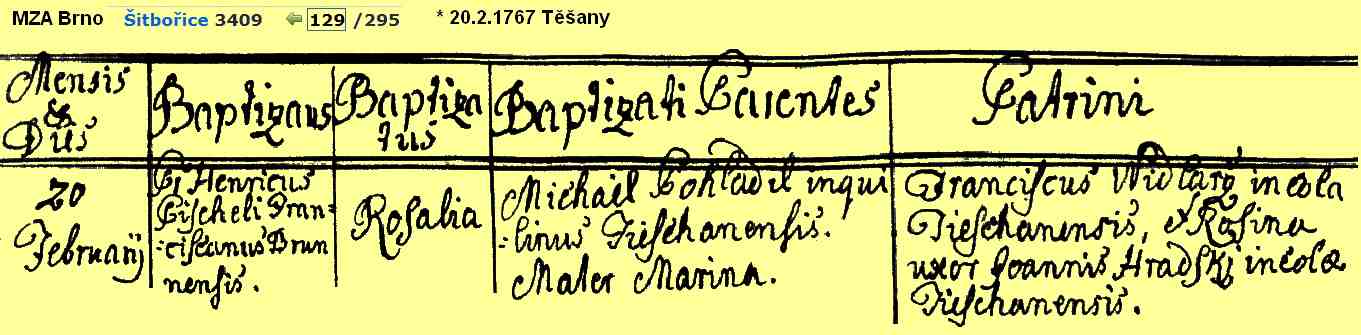 MZA Brno Šitbořice 3409 129 /295 * 20.2.1767 Těšany
Mensis
&
Dies
Baptizans
Baptiza
tus
Baptizati Parentes
Patrini
20
Februarij
P. Henricus
Pischeli Fran=
=ciscanus Brun
nensis.
Rosalia
Michael Pohladil inqui
=linus Tieschanensis.
Mater Marina.
Franciscus Widlarž incola
Tieschanensis, & Rosina
uxor Joannis Hradski incolæ
Tieschanensis.